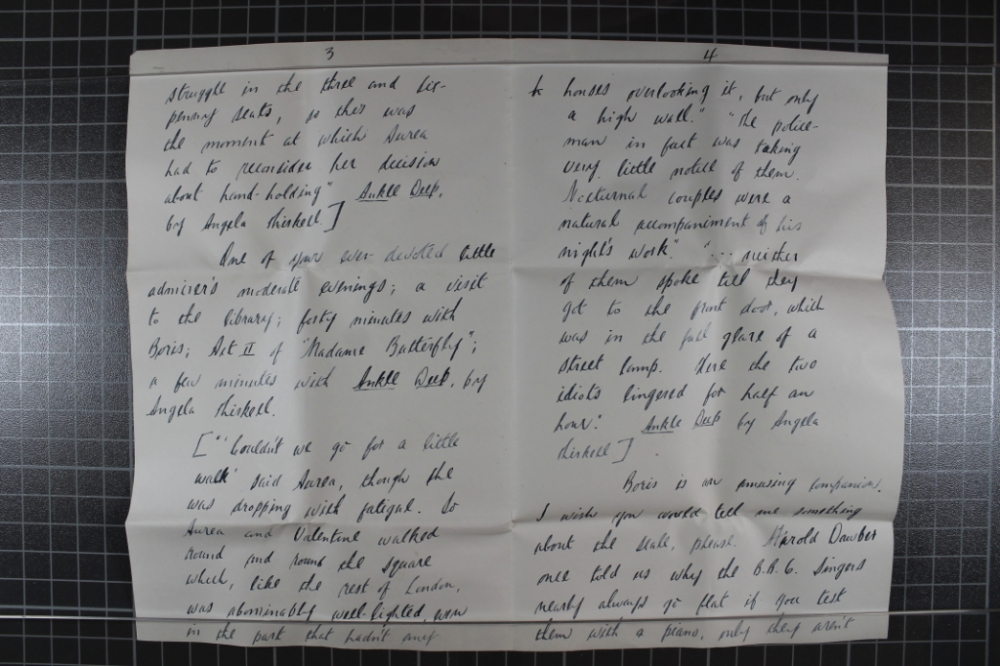 3
struggle in the three and six-
penny seats, so this was
the moment at which Aurea
had to reconsider her decision
about hand-holding" Ankle Deep,
by Angela Thirkell]
One of your ever-devoted little
admirer's moderate evenings; a visit
to the library; forty minutes with
Boris; Act II of "Madame Butterfly";
a few minutes with Ankle Deep, by
Angela Thirkell.
["'Couldn't we go for a little
walk' said Aurea, though she
was dropping with fatigue. So
Aurea and Valentine walked
round and round the square
which, like the rest of London,
was abominably well-lighted, even
in the part that hadn't any
4
houses overlooking it, but only
a high wall." "The police-
man in fact was taking
very little notice of them.
Nocturnal couples were a
natural accompaniment of his
night's work." "... neither
of them spoke till they
got to the front door, which
was in the full glare of a
street lamp. Here the two
idiots lingered for half an
hour." Ankle Deep by Angela
Thirkell].
Boris is an amusing companion.
I wish you would tell me something
about the scale, please. Harold Dawber
once told us why the B.B.C. Singers
nearly always go flat if you test
them with a piano, only they aren't